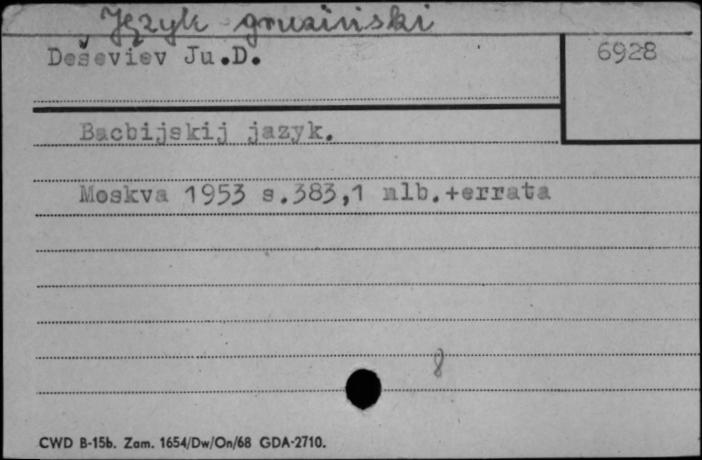 Język gruziński
Deševiev Ju.D.
6928
Bacbijskij jazyk.
Moskva 1953 s.383,1 nlb.+errata
8
CWD B-15b. Zam. 1654/Dw/On/68 GDA-2710.